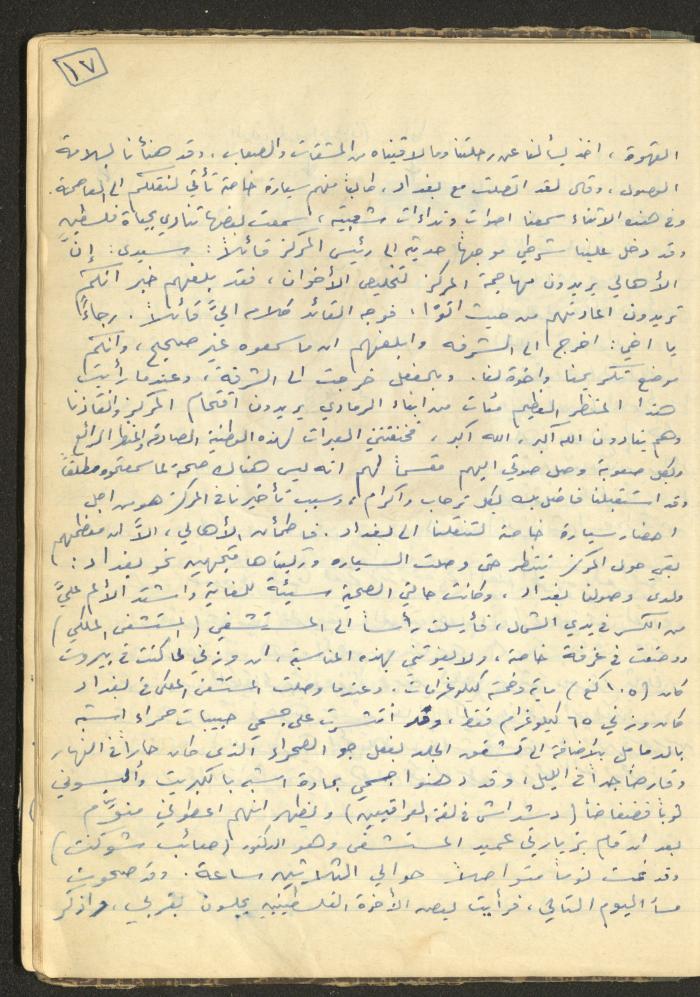 ١٧
القهوة ، اخذ يسألنا عن رحلتنا وما لاقيناه من المشقات والصعاب . وقد هنأنا بسلامة
الوصول ، وقال لقد اتصلت مع بغداد ، طالباً منهم سيارة خاصة تأتي لتنقلكم الى العاصمة .
وفي هذه الاثناء سمعنا اصوات ونداءات شعبية ، سمعت بعضها تنادي بحياة فلسطين
وقد دخل علينا شرطي موجهاً حديثه الى رئيس المركز قائلاً : سيدي : إنّ
الأهالي يريدون مهاجمة المركز لتخليص الأخوان ، فقد بلغهم خبر انكم
تريدون اعادتهم من حيث اتوا ! فوجه القائد كلامه اليّ قائلاً . رجاءً
يا اخي : اخرج الى الشرفه وابلغهم ان ما سمعوه غير صحيح ، وانكم
موضع تكريمنا واخوة لنا . وبالفعل خرجت الى الشرفة ، وعندما رأيت
هذا المنظر العظيم مئات من ابناء الرمادي يريدون اقتحام المركز وانقاذنا
وهم ينادون الله اكبر ، الله اكبر ، فخنقتني العبرات لهذه الوطنية الصادقة والمنظر الرائع
وبكل صعوبة وصل صوتي اليهم مقسماً لهم انه ليس هناك صحة لما سمعتموه مطلقاً
وقد استقبلنا فاضل بك بكل ترحاب واكرام ، وسبب تأخيرنا في المركز هو من اجل
احضار سيارة خاصة لتنقلنا الى بغداد . فاطمأن الأهالي ، الاّ ان معظمهم
بقي حول المركز ينتظر حتى وصلت السياره وركبناها متجهين نحو بغداد :
ولدى وصولنا بغداد ، وكانت حالتي الصحية سيئة للغاية واشتد الألم عليّ
من الكسر في يدي الشمال ، فأرسلت رأساً الى المستشفى (المستشفى الملكي)
ووضعت في غرفة خاصة ، ولا يفوتني بهذه المناسبة ، ان وزني لما كنت في بيروت
كان (١٠٥ كغ) ماية وخمسة كيلوغرامات . وعندما وصلت المستشفى الملكي في بغداد
كان وزني ٦٥ كيلوغرام فقط ، وقد انتشرت على جسمي حبيبات حمراء اشبه
بالدمامل بالاضافة الى تشقق الجلد بفعل جو الصحراء الذي كان حاراً في النهار
وقارصاً جداً في الليل ، وقد دهنوا جسمي بمادة اشبه بالكبريت وألبسوني
ثوباً فضفاضاً (دشداش في لغة العراقيين) ويظهر انهم اعطوني منوّم
بعد ان قام بزيارتي عميد المستشفى وهو الدكتور (صائب شوكت)
وقد نمت نوماً متواصلاً حوالي الثلاثين ساعة . وقد صحوت
مساء اليوم التالي ، فرأيت بعض الأخوة الفلسطينيين يجلسون بقربي ، واذكر